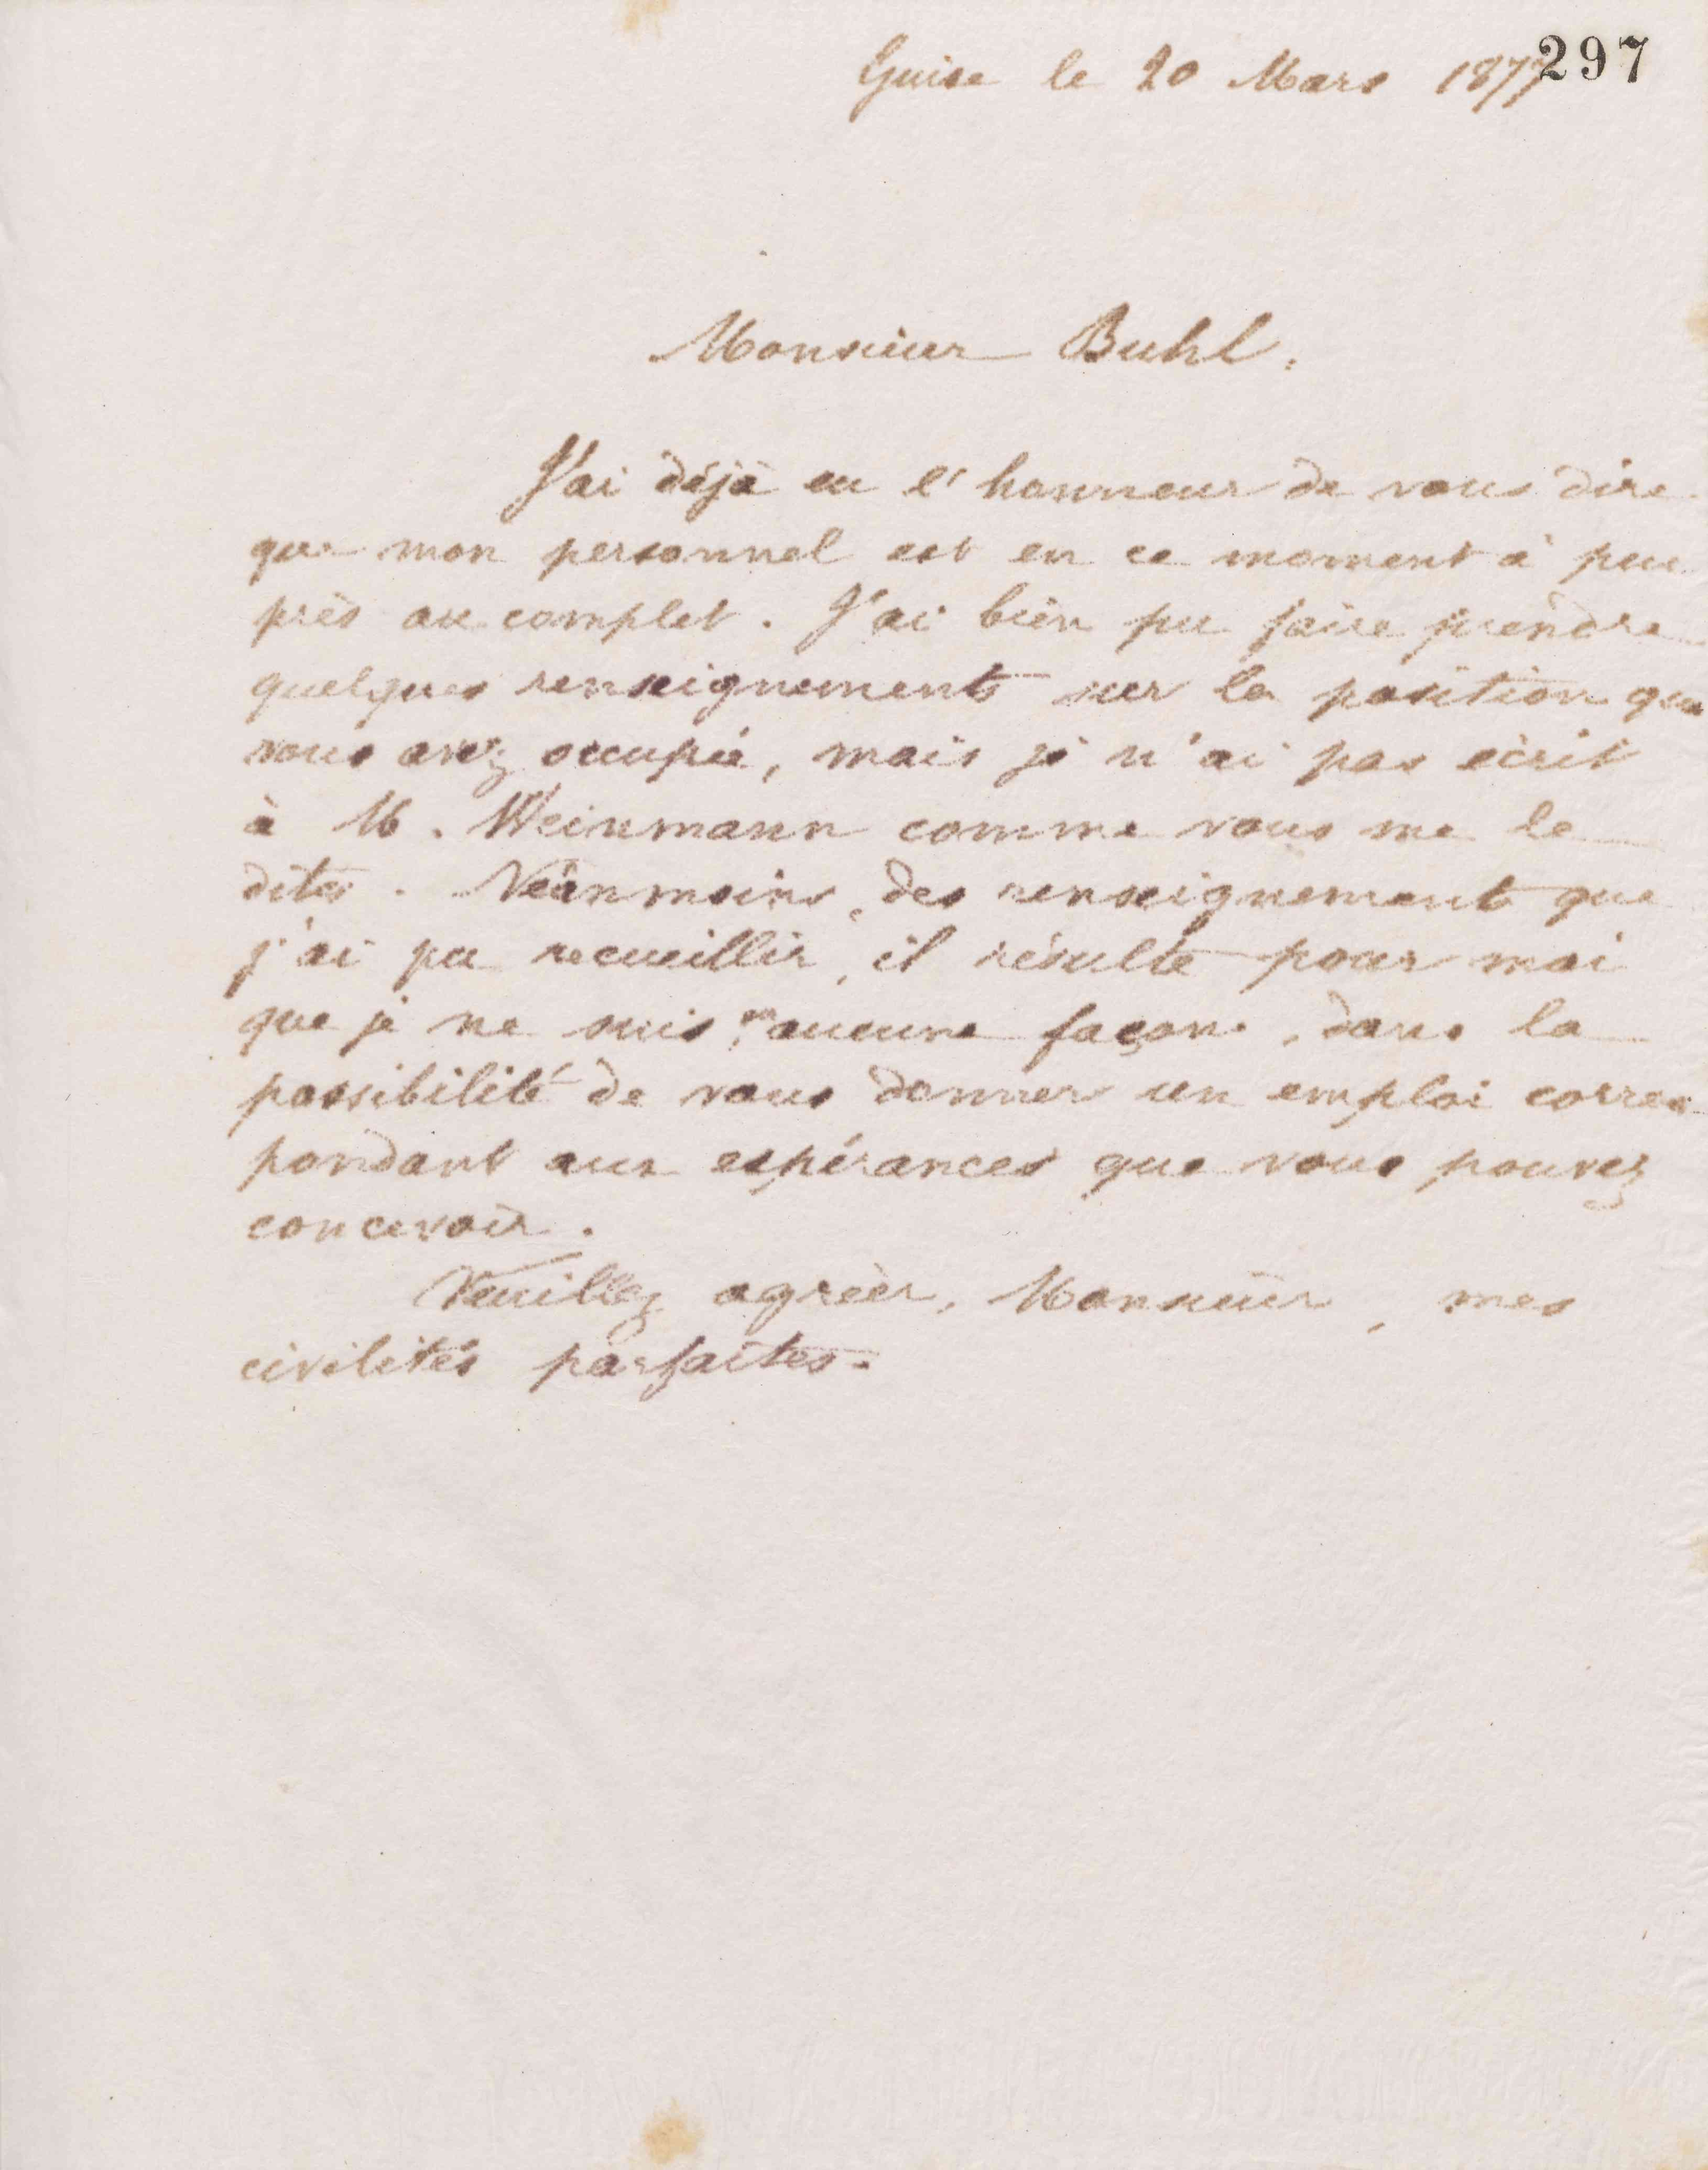 297
Guise le 20 Mars 1877
Monsieur Buhl.
J'ai déjà eu l'honneur de vous dire
que mon personnel est en ce moment à peu
près au complet. J'ai bien pu faire prendre
quelques renseignements sur la position que
vous avez occupée, mais je n'ai pas écrit
à M. Weinmann comme vous me le
dites. Néanmoins, des renseignements que
j'ai pu recueillir, il résulte pour moi
que je ne suis, en aucune façon, dans la
possibilité de vous donner un emploi corres
pondant aux espérances que vous pouvez
concevoir.
Veuillez agréer, Monsieur, mes
civilités parfaites.